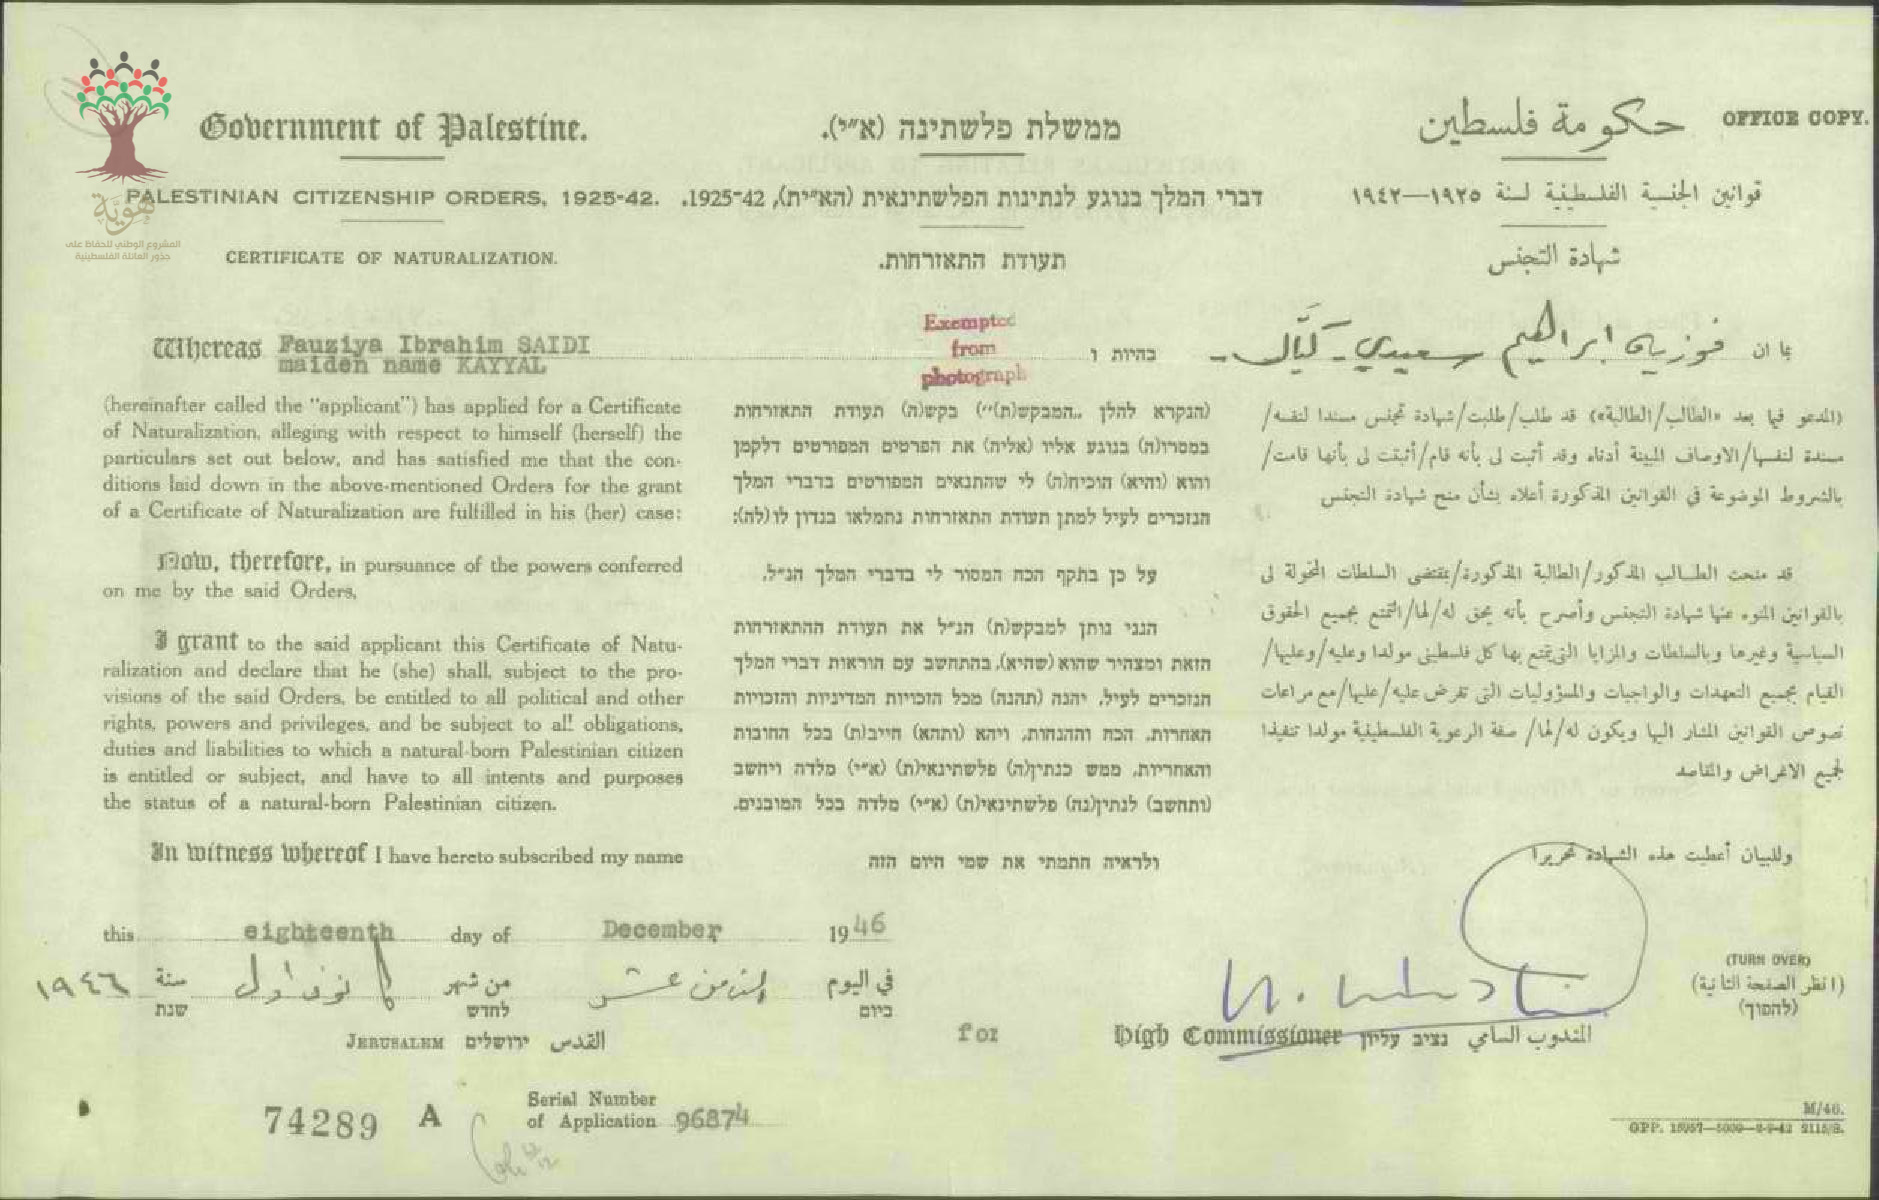 OFFICE COPY.
Government of Palestine.
PALESTINIAN CITIZENSHIP ORDERS, 1925-42.
CERTIFICATE OF NATURALIZATION.
ממשלת פלשתינה (א״י).
דברי המלך בנוגע לנתינות הפלשתינאית (הא״ית), 1925-42.
תעודת התאזרחות.
حكومة فلسطين
قوانين الجنسية الفلسطينية لسنة ١٩٢٥—١٩٤٢
شهادة التجنس
هوية
المشروع الوطني للحفاظ على
جذور العائلة الفلسطينية
Whereas Fauziya Ibrahim SAIDI
maiden name KAYYAL
Exempted
from
photograph
(hereinafter called the "applicant") has applied for a Certificate
of Naturalization, alleging with respect to himself (herself) the
particulars set out below, and has satisfied me that the con-
ditions laid down in the above-mentioned Orders for the grant
of a Certificate of Naturalization are fulfilled in his (her) case:
Now, therefore, in pursuance of the powers conferred
on me by the said Orders,
I grant to the said applicant this Certificate of Natu-
ralization and declare that he (she) shall, subject to the pro-
visions of the said Orders, be entitled to all political and other
rights, powers and privileges, and be subject to all obligations,
duties and liabilities to which a natural-born Palestinian citizen
is entitled or subject, and have to all intents and purposes
the status of a natural-born Palestinian citizen.
In witness whereof I have hereto subscribed my name
בהיות ו
(הנקרא להלן ,,המבקש(ת)'') בקש(ה) תעודת התאזרחות
במסרו(ה) בנוגע אליו (אליה) את הפרטים המפורטים דלקמן
והוא (והיא) הוכיח(ה) לי שהתנאים המפורטים בדברי המלך
הנזכרים לעיל למתן תעודת התאזרחות נתמלאו בנדון לו(לה):
על כן בתקף הכח המסור לי בדברי המלך הנ״ל,
הנני נותן למבקש(ת) הנ״ל את תעודת ההתאזרחות
הזאת ומצהיר שהוא (שהיא), בהתחשב עם הוראות דברי המלך
הנזכרים לעיל, יהנה (תהנה) מכל הזכויות המדיניות והזכויות
האחרות, הכח וההנחות, ויהא (ותהא) חייב(ת) בכל החובות
והאחריות, ממש כנתין(ה) פלשתינאי(ת) (א״י) מלדה ויחשב
(ותחשב) לנתין(נה) פלשתינאי(ת) (א״י) מלדה בכל המובנים.
ולראיה חתמתי את שמי היום הזה
بما ان فوزيه ابراهيم سعيدي - كيّال -
(المدعو فيما بعد «الطالب/الطالبة») قد طلب/طلبت/شهادة تجنس مسندا لنفسه/
مسندة لنفسها/الاوصاف المبينة أدناه وقد أثبت لي بأنه قام/أثبتت لي بأنها قامت/
بالشروط الموضوعة في القوانين المذكورة أعلاه بشأن منح شهادة التجنس
قد منحت الطالب المذكور/الطالبة المذكورة/بمقتضى السلطات المخولة لي
بالقوانين المنوه عنها شهادة التجنس وأصرح بأنه يحق له/لها/التمتع بجميع الحقوق
السياسية وغيرها وبالسلطات والمزايا التي يتمتع بها كل فلسطيني مولدا وعليه/وعليها/
القيام بجميع التعهدات والواجبات والمسؤوليات التي تفرض عليه/عليها/مع مراعات
نصوص القوانين المشار اليها ويكون له/لها/ صفة الرعوية الفلسطينية مولدا تنفيذا
لجميع الاغراض والمقاصد
وللبيان أعطيت هذه الشهادة تحريرا
this eighteenth day of December 1946
في اليوم الثامن عشر من شهر كانون اول سنة ١٩٤٦
ביום לחדש שנת
JERUSALEM ירושלים القدس
for High Commissioner נציב עליון المندوب السامي
(TURN OVER)
(انظر الصفحة الثانية)
(להפוך)
74289 A
Serial Number
of Application 96874
M/46.